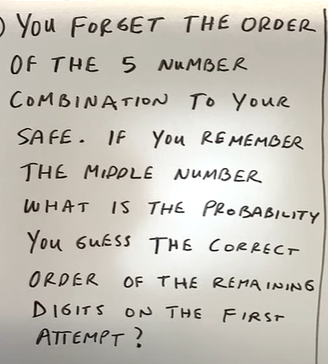 ) YOU FORGET THE ORDER
OF THE 5 NUMBER
COMBINATION TO YOUR
SAFE. IF YOU REMEMBER
THE MIDDLE NUMBER
WHAT IS THE PROBABILITY
YOU GUESS THE CORRECT
ORDER OF THE REMAINING
DIGITS ON THE FIRST
ATTEMPT?